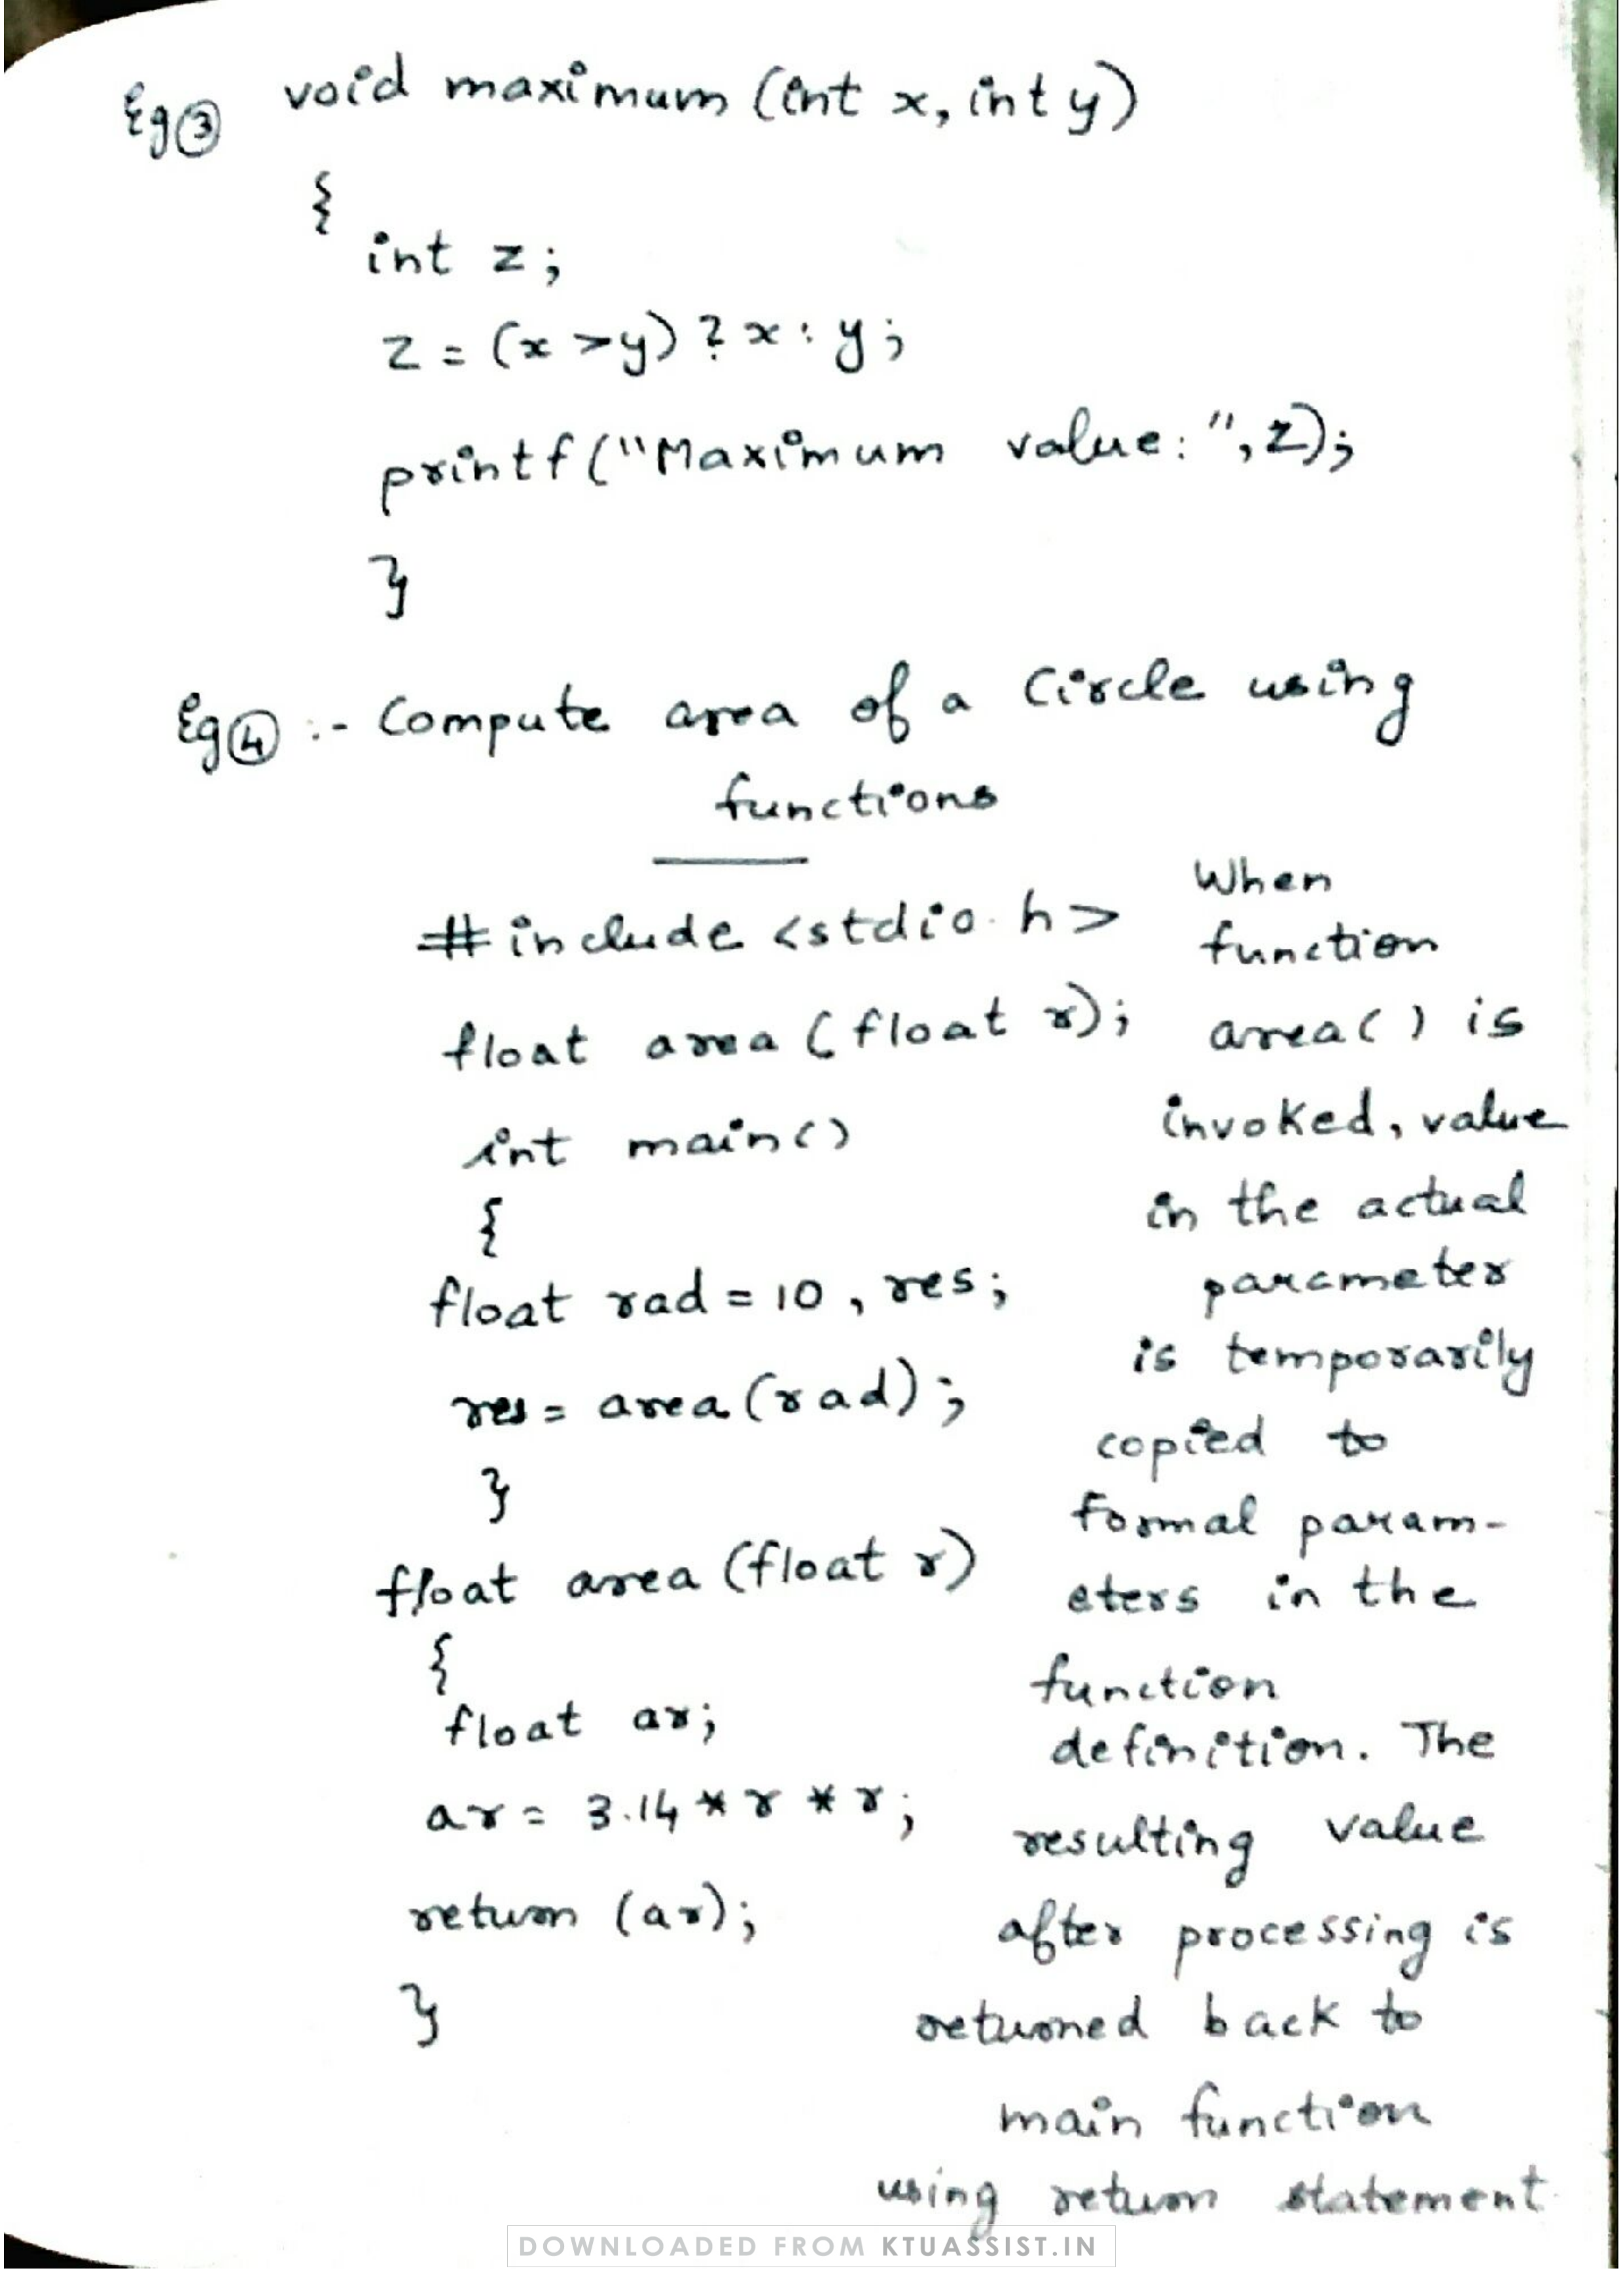 Eg③ void maximum (int x, int y)
{
int z;
z = (x >y) ? x : y;
printf("Maximum value: ", z);
}
Eg④ :- Compute area of a Circle using
functions
#include <stdio.h>
float area (float r);
int main()
{
float rad = 10, res;
res = area (rad);
}
float area (float r)
{
float ar;
ar = 3.14 * r * r;
return (ar);
}
When
function
area() is
invoked, value
in the actual
parameter
is temporarily
copied to
formal param-
eters in the
function
definition. The
resulting value
after processing is
returned back to
main function
using return statement
DOWNLOADED FROM KTUASSIST.IN